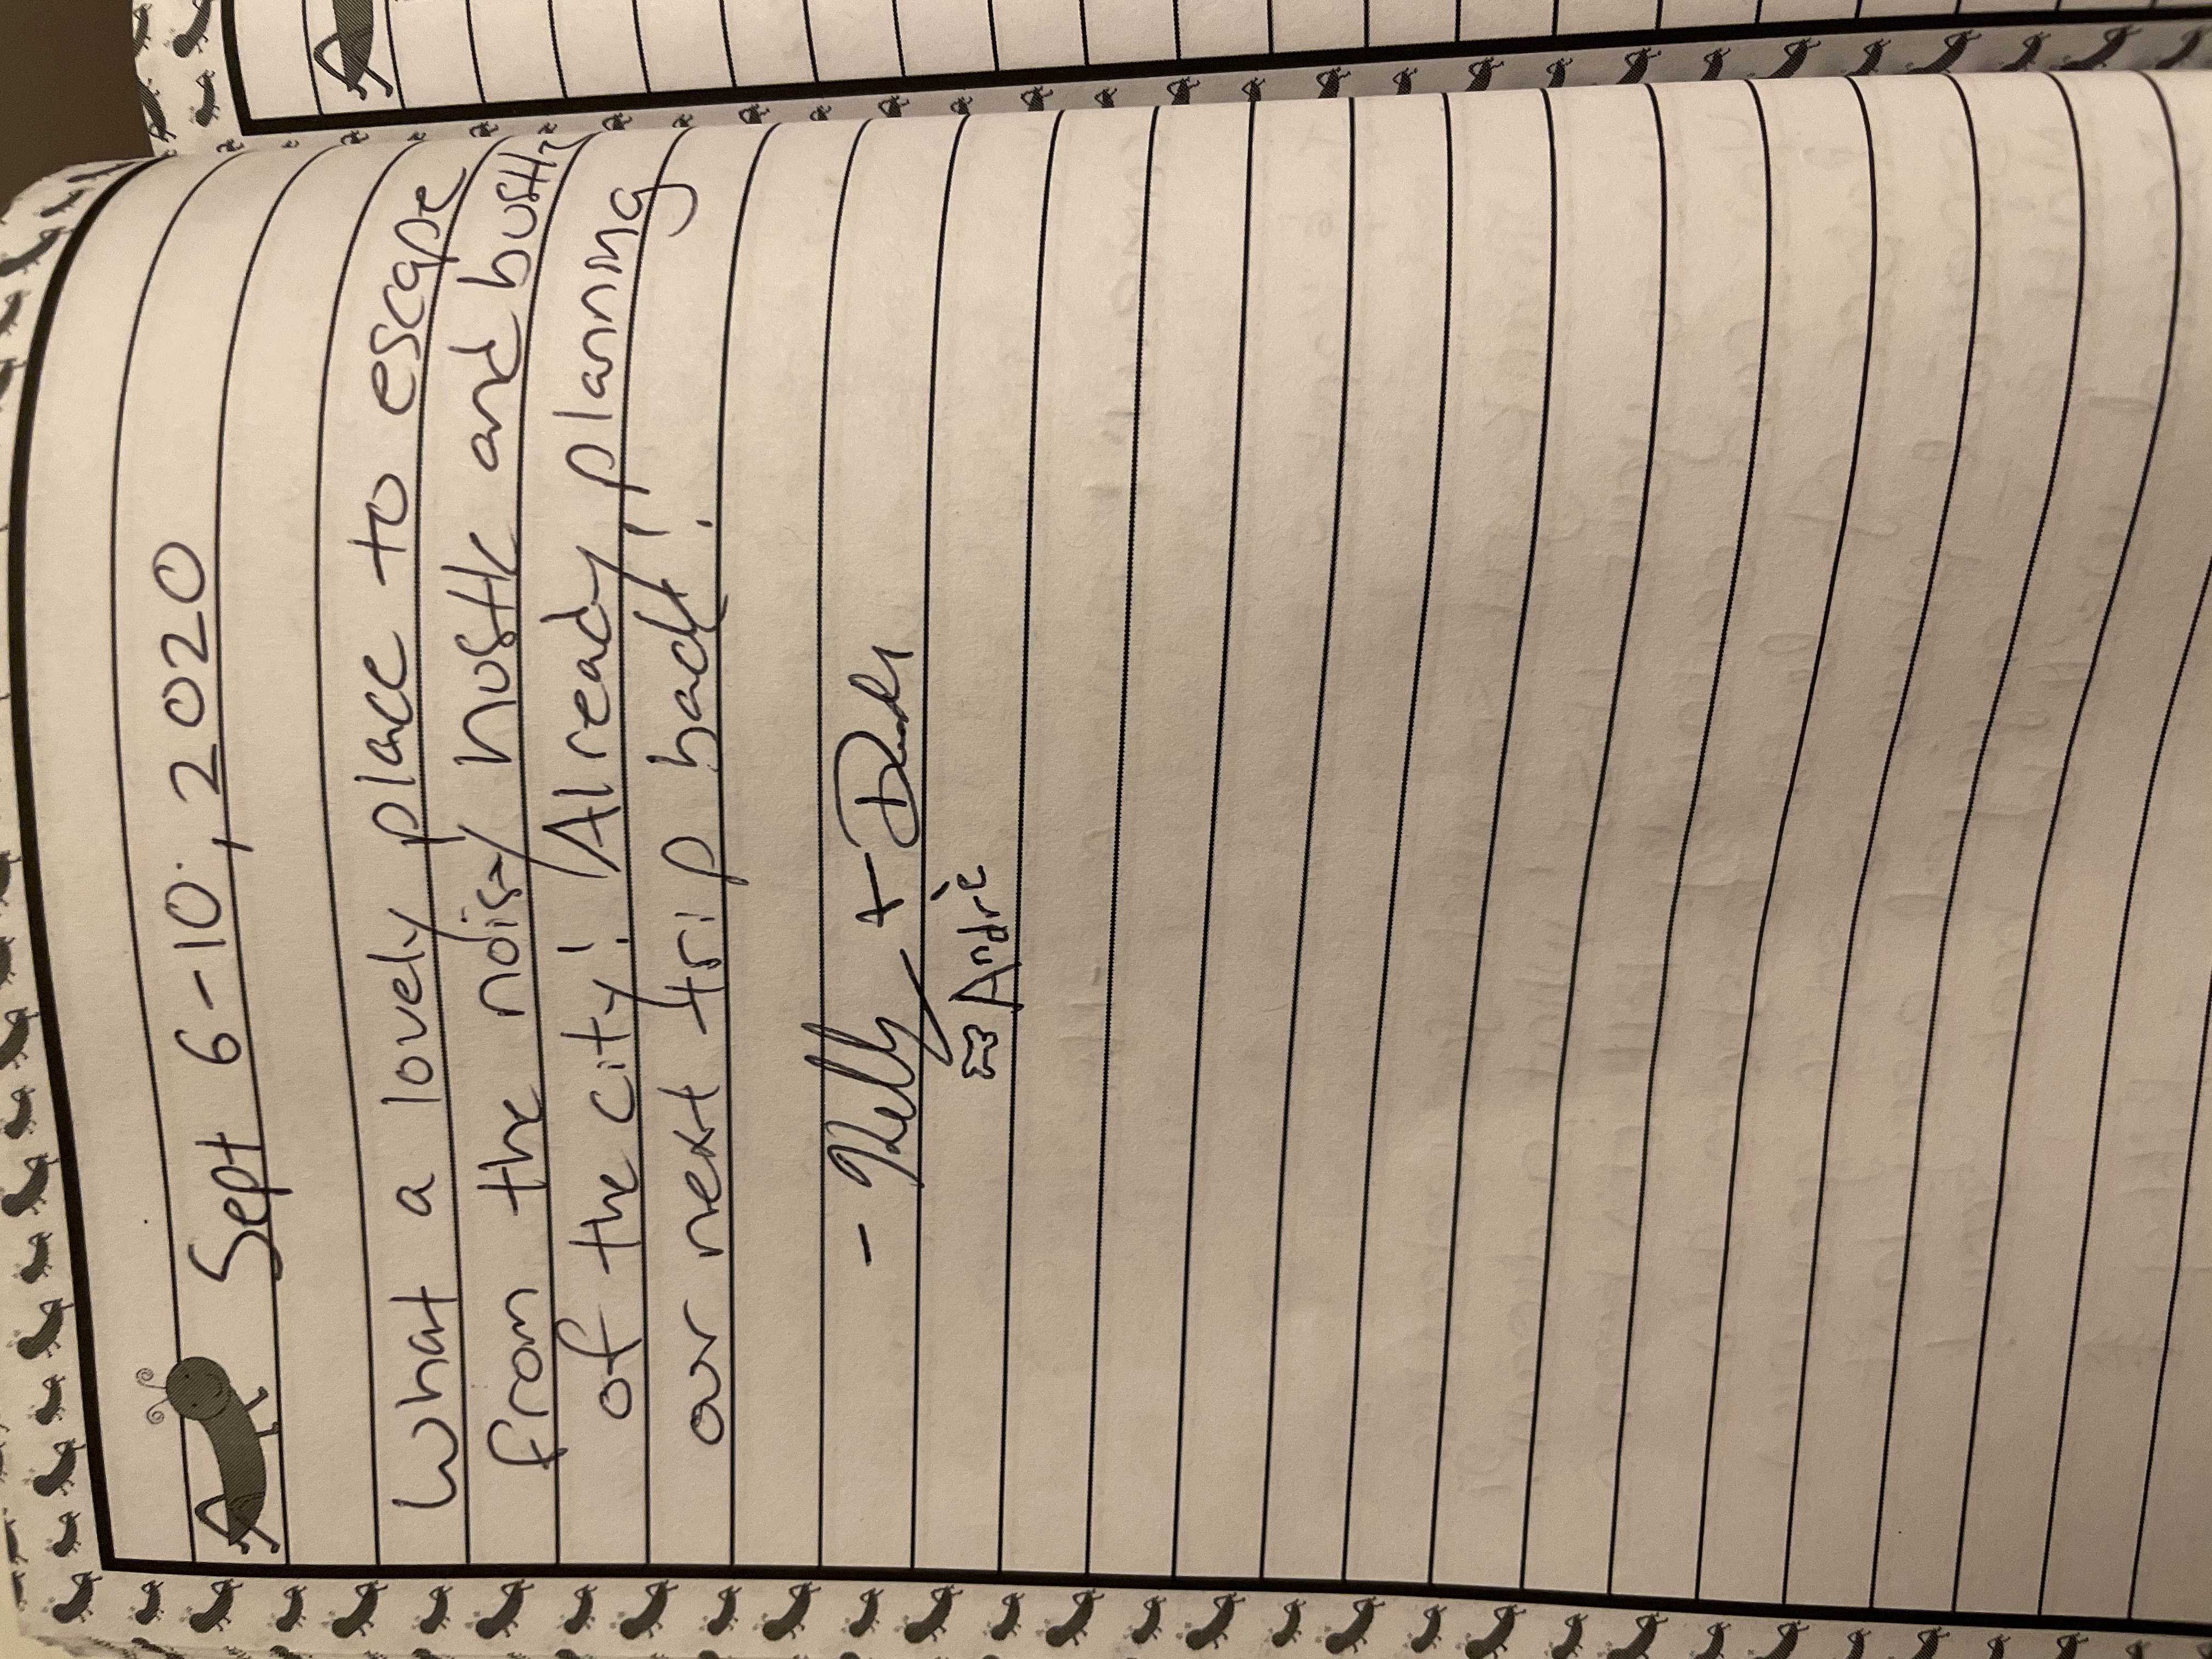 Sept 6-10, 2020
What a lovely place to escape
from the noisy hustle and bustle
of the city! Already planning
our next trip back!
- Kelly +
Andrè